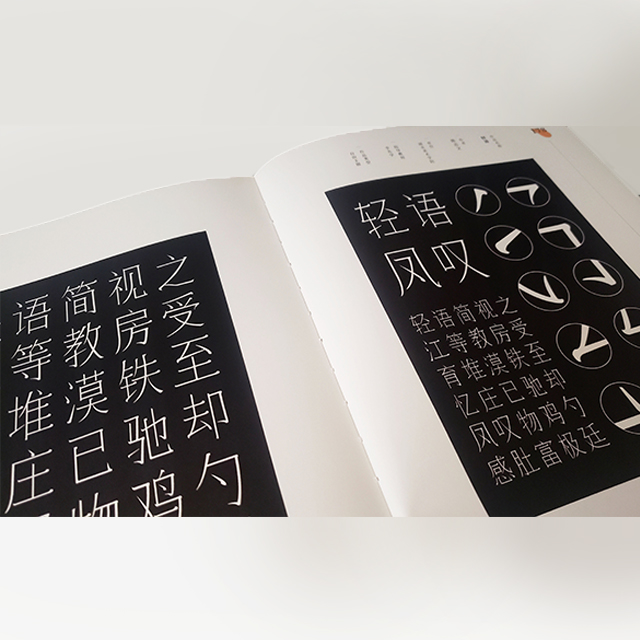 语简视之
等教房受
堆漠铁至
庄已驰却
物鸡勺
轻语
风叹
轻语简视之
江等教房受
育堆漠铁至
忆庄已驰却
风叹物鸡勺
感肚富极廷